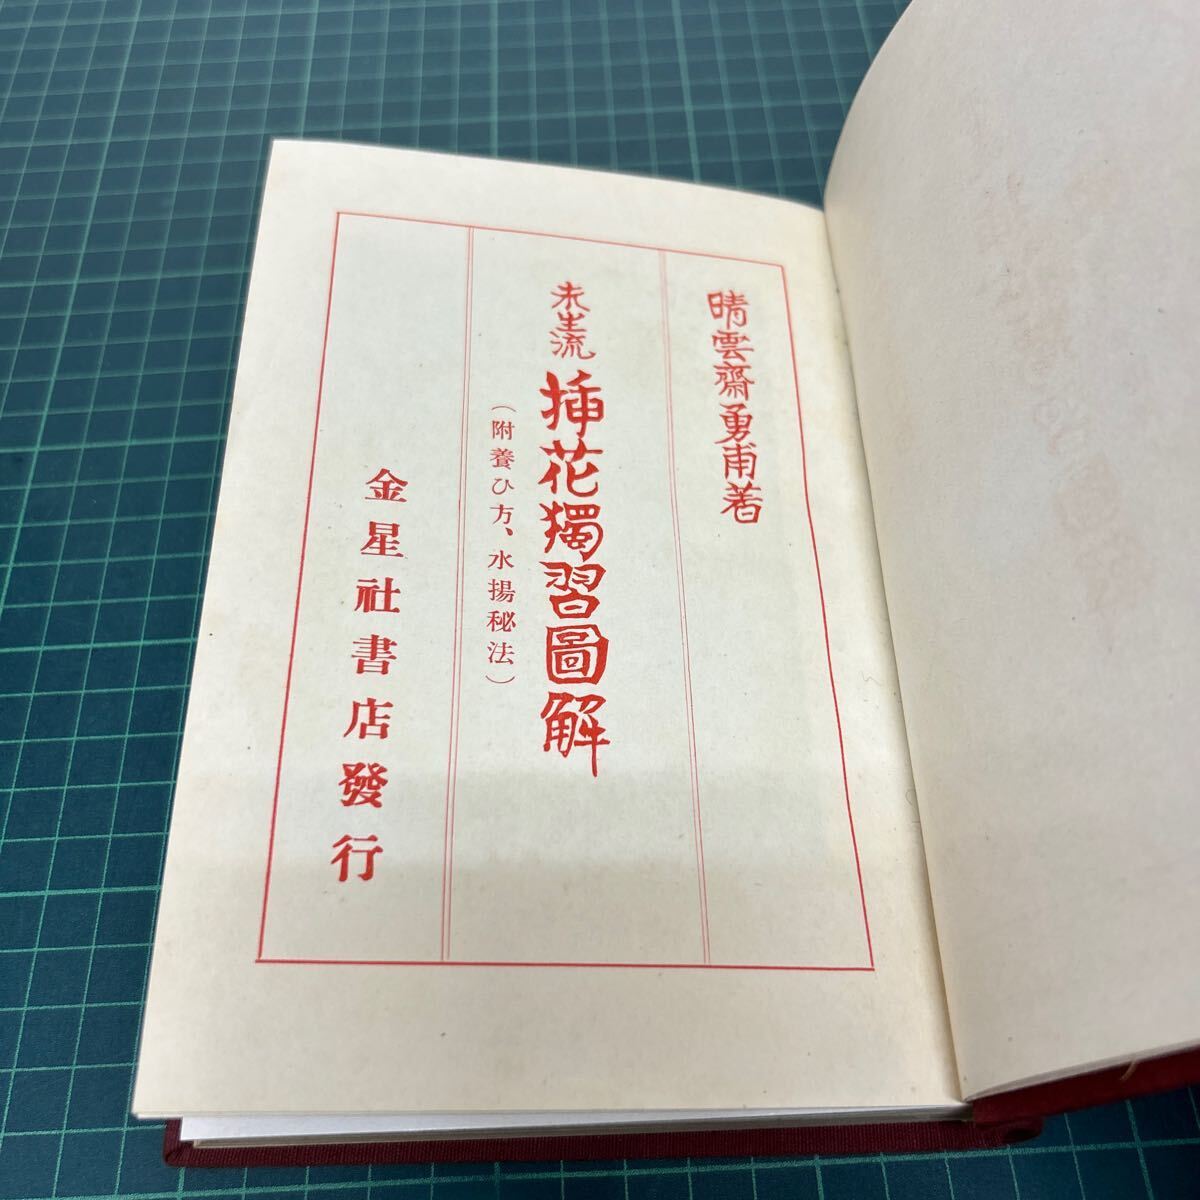 晴雲齋勇甫著
未生流 挿花獨習圖解
（附養ひ方、水揚秘法）
金星社書店發行